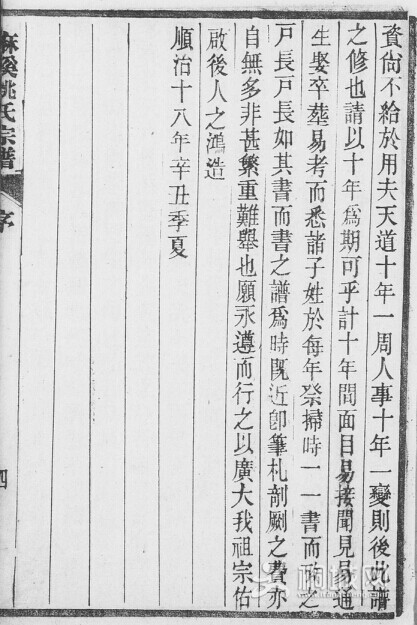 資尙不給於用夫天道十年一周人事十年一變則後此譜
之修也請以十年爲期可乎計十年間面目易接聞見易通
生娶卒葬易考而悉諸子姓於每年祭掃時一一書而致之
戸長戸長如其書而書之譜爲時既近卽筆札剞劂之費亦
自無多非甚繁重難舉也願永遵而行之以廣大我祖宗佑
啟後人之鴻造
順治十八年辛丑季夏
麻溪姚氏宗譜
序
四